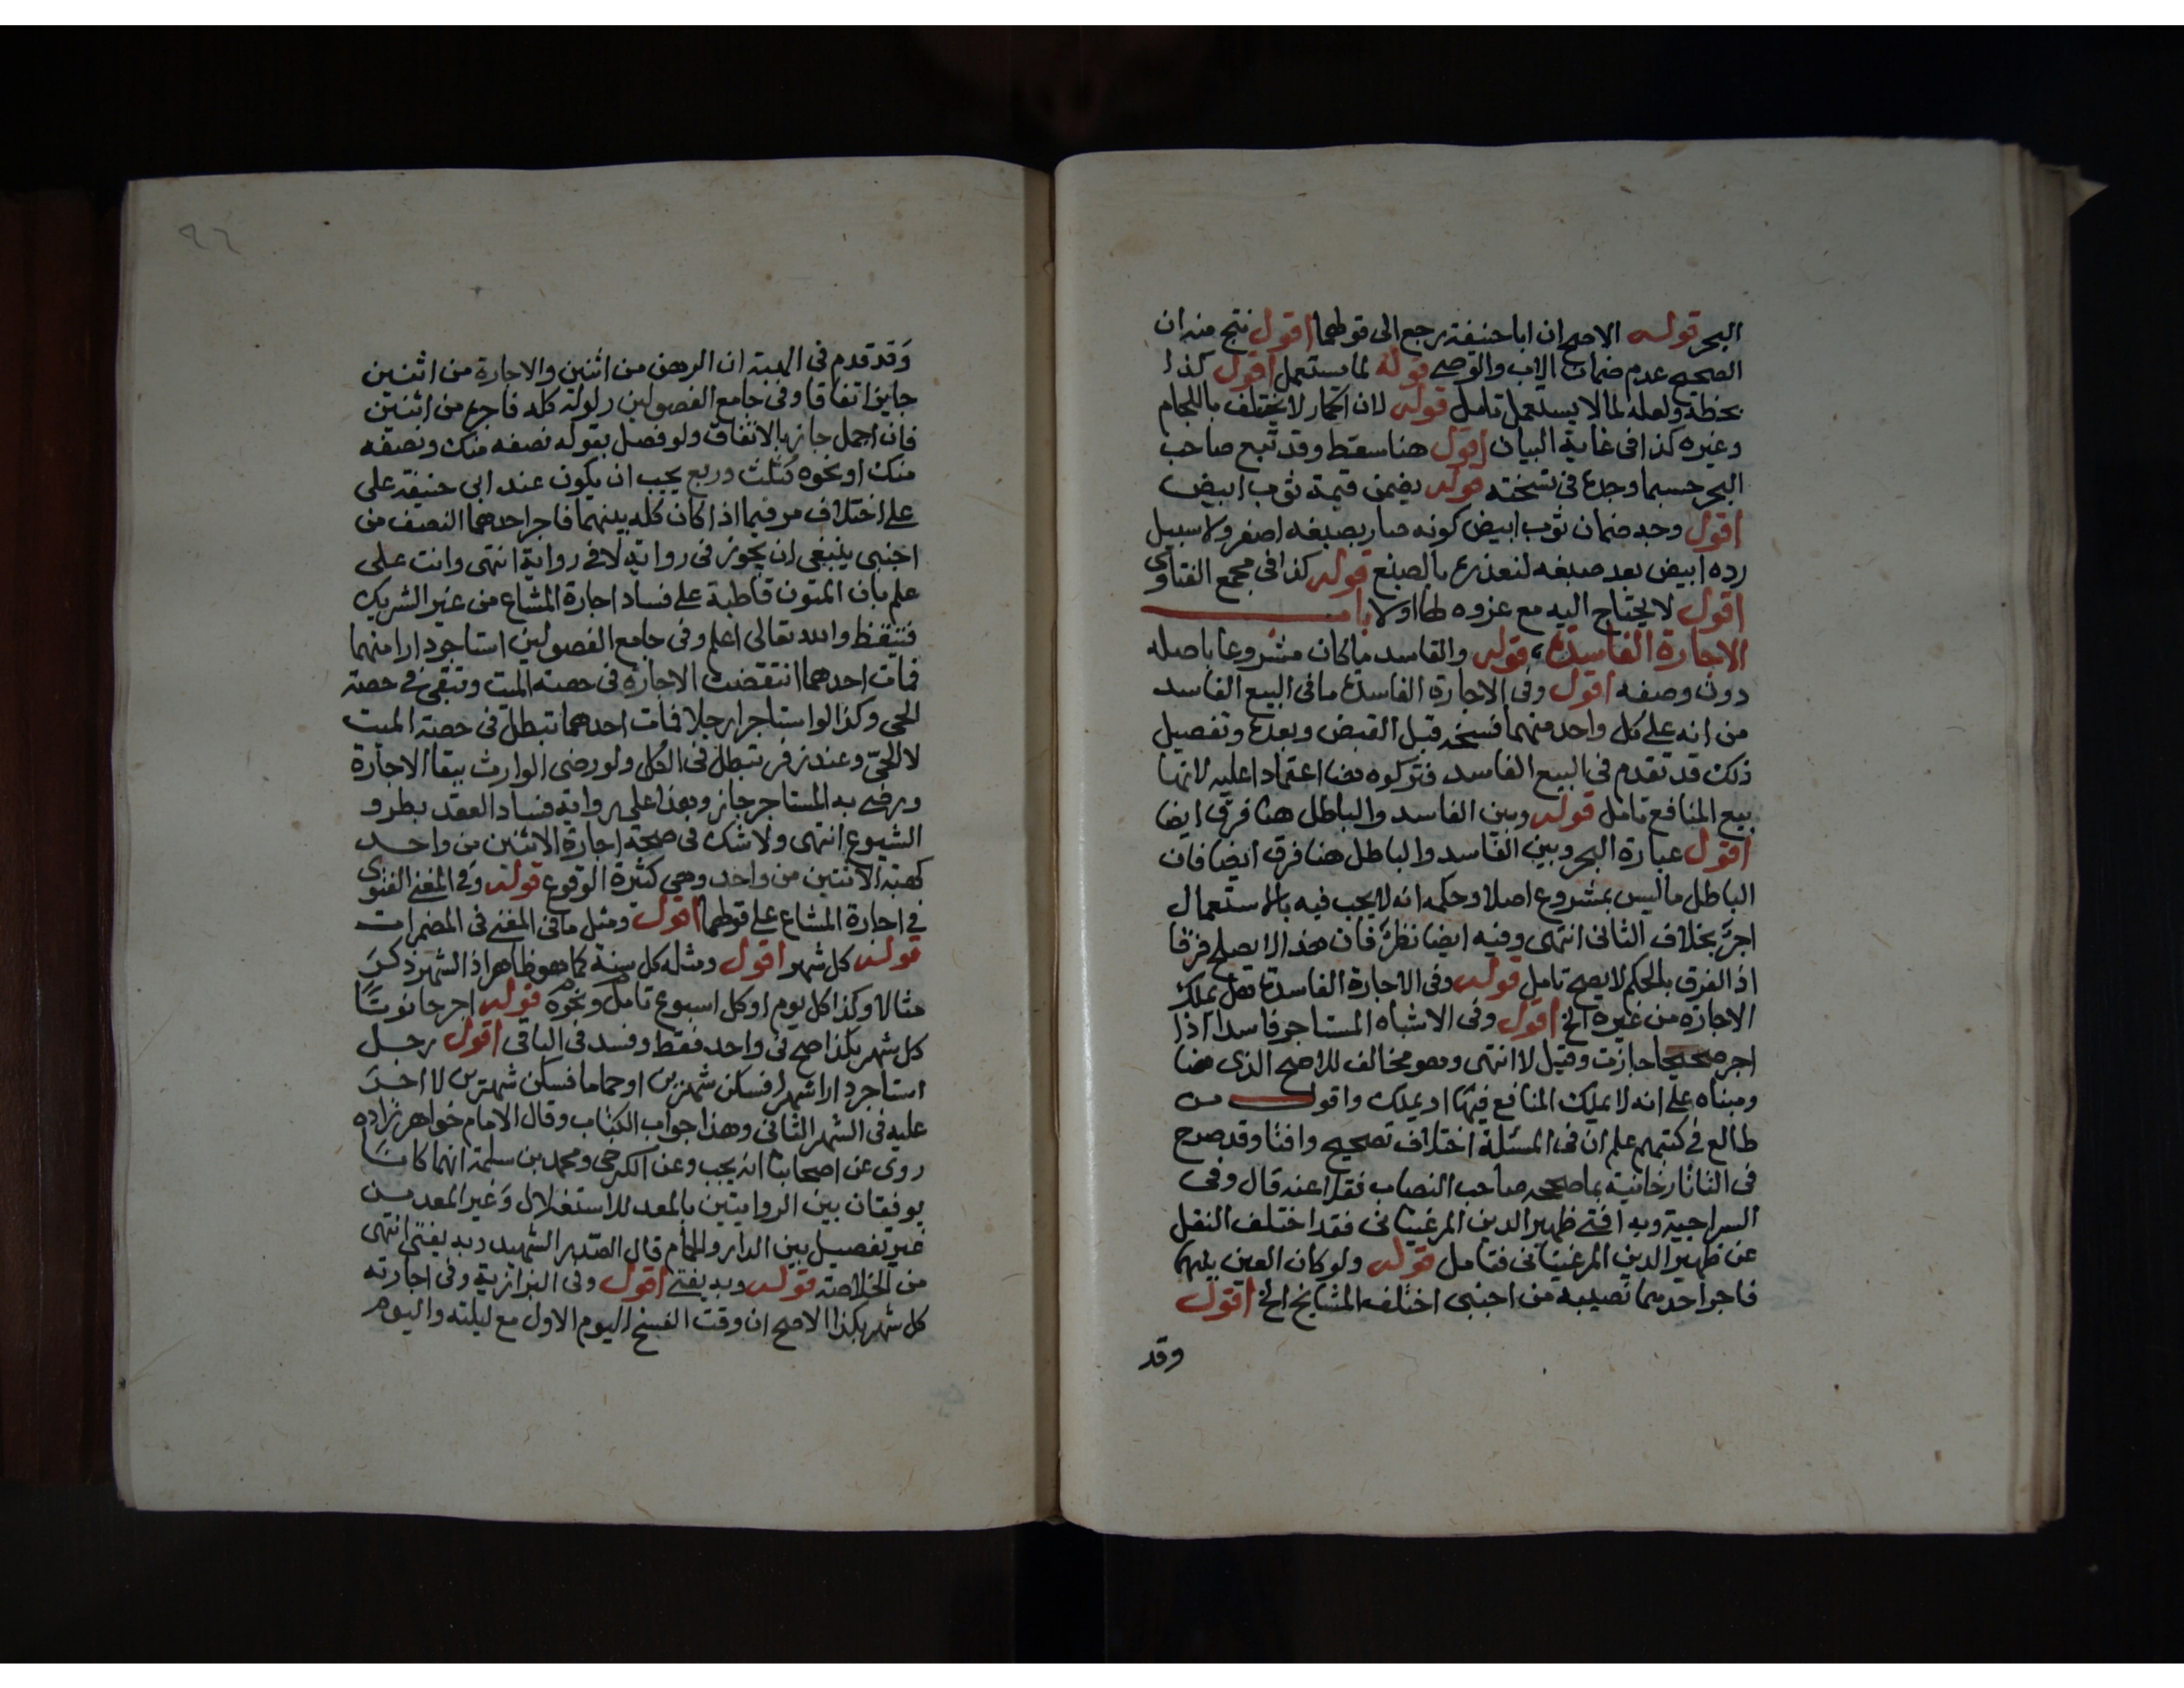 البحر قوله الاصح ان ابا حنيفة رجع الى قولهما اقول نتج منه ان
الصحيح عدم ضمان الاب والوصي قوله لما يستعمل اقول كذا
بخطه ولعله لما لا يستعمل تامل قوله لان الحمار لا يختلف باللجام
وغيره كذا في غاية البيان اقول هنا سقط وقد تبع صاحب
البحر حسبما وجده في نسخته قوله يضمن قيمة ثوب ابيض
اقول وجه ضمان ثوب ابيض كونه صار بصبغه اصفر ولا سبيل
رده ابيض بعد صبغه لتعذره بالصبغ قوله كذا في مجمع الفتاوى
اقول لا يحتاج اليه مع عزوه لها اولا باب
الاجارة الفاسدة قوله والفاسد ما كان مشروعا باصله
دون وصفه اقول وفي الاجارة الفاسدة ما في البيع الفاسد
من انه على كل واحد منهما فسخه قبل القبض وبعده وتفصيل
ذلك قد تقدم في البيع الفاسد فتركوه هنا اعتمادا عليه لانها
بيع المنافع تامل قوله وبين الفاسد والباطل هنا فرق ايضا
اقول عبارة البحر وبين الفاسد والباطل هنا فرق ايضا فان
الباطل ما ليس بمشروع اصلا وحكمه انه لا يجب فيه بالاستعمال
اجر بخلاف الثاني انتهى وفيه ايضا نظر فان هذا لا يصلح فرقا
اذ الفرق بالحكم لا يصح تامل قوله وفي الاجارة الفاسدة هل يملك
الاجاره من غيره الخ اقول وفي الاشباه المستاجر فاسدا اذا
اجر صحيحا جازت وقيل لا انتهى وهو مخالف للاصح الذي هنا
ومبناه على انه لا يملك المنافع فيها او يملك واقول من
طالع في كتبهم علم ان في المسئلة اختلاف تصحيح وافتا وقد صرح
في التاتارخانية بما صححه صاحب النصاب نقلا عنه قال وفي
السراجية وبه افتى ظهير الدين المرغيناني فقد اختلف النقل
عن ظهير الدين المرغيناني فتامل قوله ولو كان العين بينهما
فاجر احدهما نصيبه من اجنبي اختلف المشايخ الخ اقول
وقد
٩٦
وقد قدم في الهبة ان الرهن من اثنين والاجارة من اثنين
جايز اتفاقا وفي جامع الفصولين ولو له كله فاجره من اثنين
فان اجمل جاز بالاتفاق ولو فصل بقوله نصفه منك ونصفه
منك او نحوه كثلث وربع يجب ان يكون عند ابي حنيفة على
على اختلاف مر فيما اذا كان كله بينهما فاجر احدهما النصف من
اجنبي ينبغي ان يجوز في رواية لا في رواية انتهى وانت على
علم بان المتون قاطبة على فساد اجارة المشاع من غير الشريك
فتيقظ والله تعالى اعلم وفي جامع الفصولين استاجر دارا منهما
فمات احدهما انتقضت الاجازه في حصته الميت وتبقى في حصته
الحي وكذا لو استاجرا رجلا فمات احدهما تبطل في حصته الميت
لا الحي وعند زفر تبطل في الكل ولو رضى الوارث ببقا الاجارة
ورضى به المستاجر جاز وهذا على رواية فساد العقد بطرو
الشيوع انتهى ولا شك في صحة اجارة الاثنين من واحد
كهبة الاثنين من واحد وهي كثيرة الوقوع قوله وفي المغني الفتوى
في اجارة المشاع على قولهما اقول ومثل ما في المغني في المضمرات
قوله كل شهر اقول ومثله كل سنة كما هو ظاهر اذ الشهر ذكر
مثالا وكذا كل يوم او كل اسبوع تامل ونحوه قوله اجر حانوتا
كل شهر بكذا صح في واحد فقط وفسد في الباقي اقول رجل
استاجر دارا شهرا فسكن شهرين او حماما فسكن شهرين لا اجر
عليه في الشهر الثاني وهذا جواب الكتاب وقال الامام خواهر زاده
روى عن اصحابنا انه يجب وعن الكرخي ومحمد بن سلمة انهما كانا
يوفقان بين الروايتين بالمعد للاستغلال وغير المعد من
غير تفصيل بين الدار والحمام قال الصدر الشهيد وبه يفتى انتهى
من الخلاصة قوله وبه يفتى اقول وفي البزازية وفي اجارته
كل شهر بكذا الاصح ان وقت الفسخ اليوم الاول مع ليلته واليوم